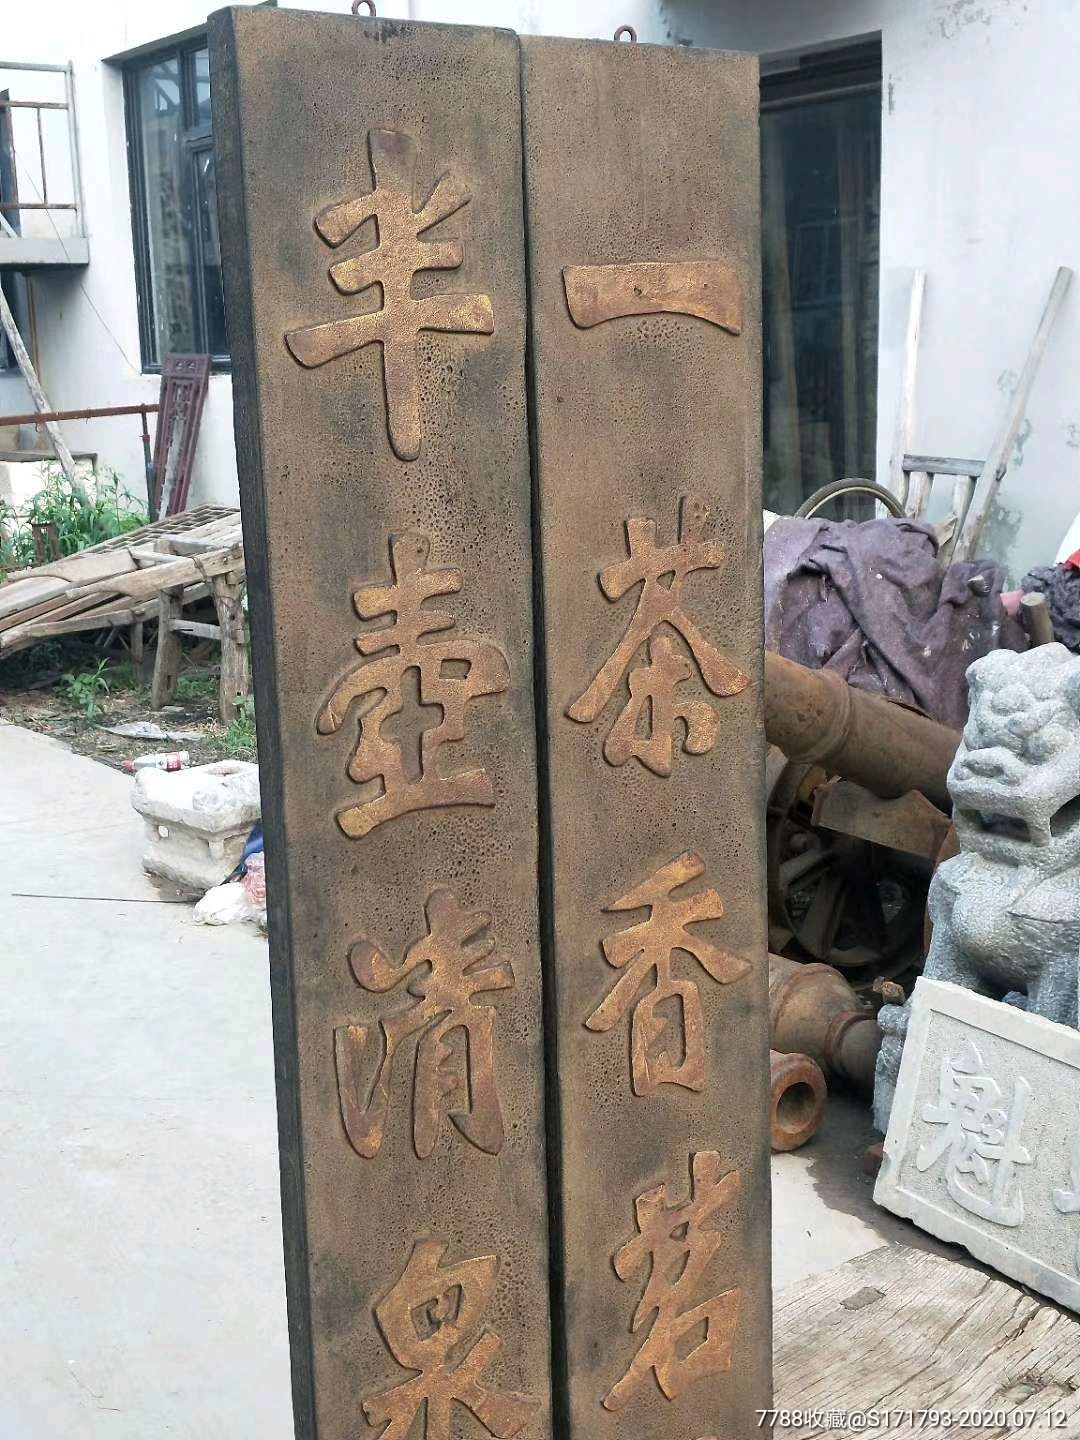 一茶香茗
半壺清泉
魁
7788收藏@S171793-2020.07.12